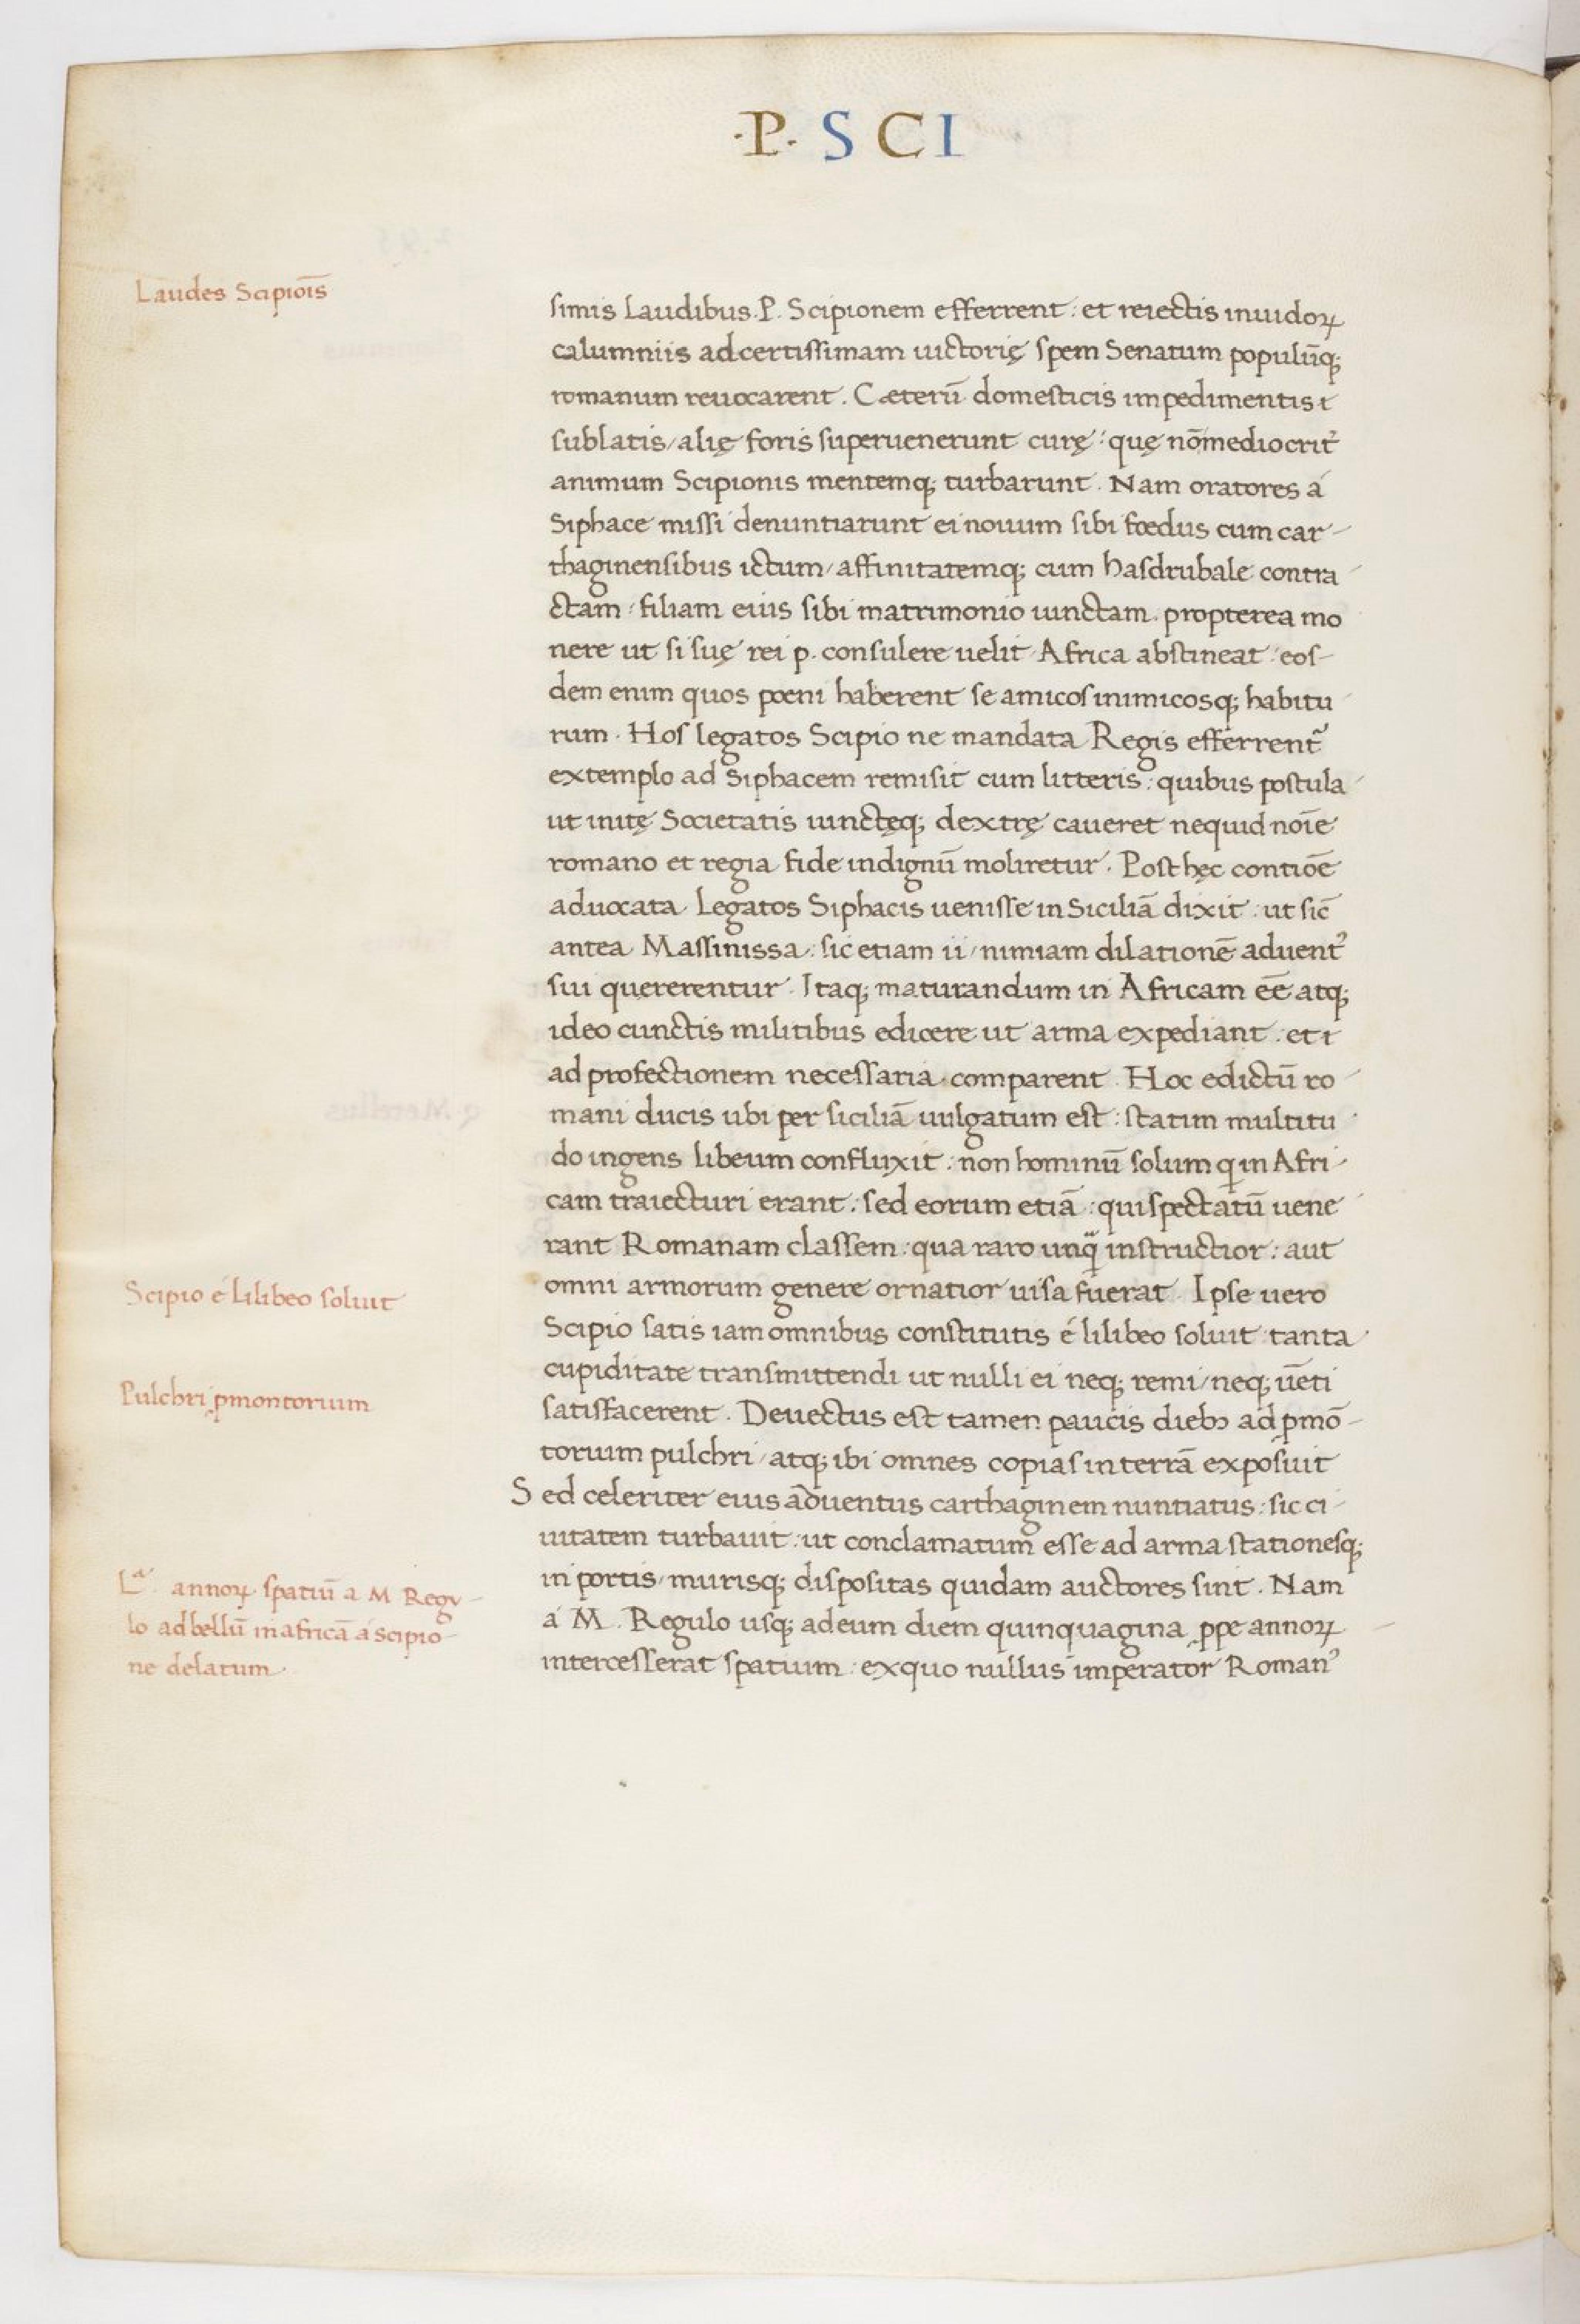 ·P· SCI
Laudes Scipioīs
simis laudibus P. Scipionem efferrent: et reiectis inuidoꝝ
calumniis ad certissimam uictorię spem Senatum populūq;
romanum reuocarent. Cæterū domesticis impedimentis
sublatis/alię foris superuenerunt curę: quę nō mediocrit᷑
animum Scipionis mentemq; turbarunt. Nam oratores á
Siphace missi denuntiarunt ei nouum sibi fœdus cum car-
thaginensibus ictum/affinitatemq; cum hasdrubale contra
ctam: filiam eius sibi matrimonio iunctam. propterea mo
nere ut si suę rei p. consulere uelit Africa abstineat: eos-
dem enim quos pœni haberent se amicos inimicosq; habitu
rum. Hos legatos Scipio ne mandata Regis efferrent᷑
extemplo ad Siphacem remisit cum litteris: quibus postula
ut initę Societatis iunctęq; dextrę caueret nequid noīe
romano et regia fide indignū moliretur. Post hęc contiōe
aduocata legatos Siphacis uenisse in Siciliā dixit: ut sic
antea Massinissa: sic etiam ii/nimiam dilationē aduentꝰ
sui quererentur. Itaq; maturandum in Africam eē atq;
ideo cunctis militibus edicere ut arma expediant: et
ad profectionem necessaria comparent. Hoc edictū ro
mani ducis ubi per siciliā uulgatum est: statim multitu
do ingens libeum confluxit: non hominū solum q in Afri-
cam traiecturi erant: sed eorum etiā: qui spectatū uene
rant Romanam classem: qua raro unq̃ instructior: aut
omni armorum genere ornatior uisa fuerat. Ipse uero
Scipio é lilibeo soluit
Scipio satis iam omnibus constitutis é lilibeo soluit tanta
cupiditate transmittendi ut nulli ei neq; remi/neq; uēti
Pulchri ꝓmontorium
satisfacerent. Deuectus est tamen paucis diebꝰ ad ꝓmō-
torium pulchri/atq; ibi omnes copias in terrā exposuit
Sed celeriter eius aduentus carthaginem nuntiatus: sic ci-
uitatem turbauit: ut conclamatum esse ad arma stationesq;
in portis/murisq; dispositas quidam auctores sint. Nam
á M. Regulo usq; ad eum diem quinquagina ꝓpe annoꝝ
intercesserat spatium: ex quo nullus imperator Romanꝰ
Lᵃ. annoꝝ spatiū a M Regu-
lo ad bellū in africā á scipio-
ne delatum